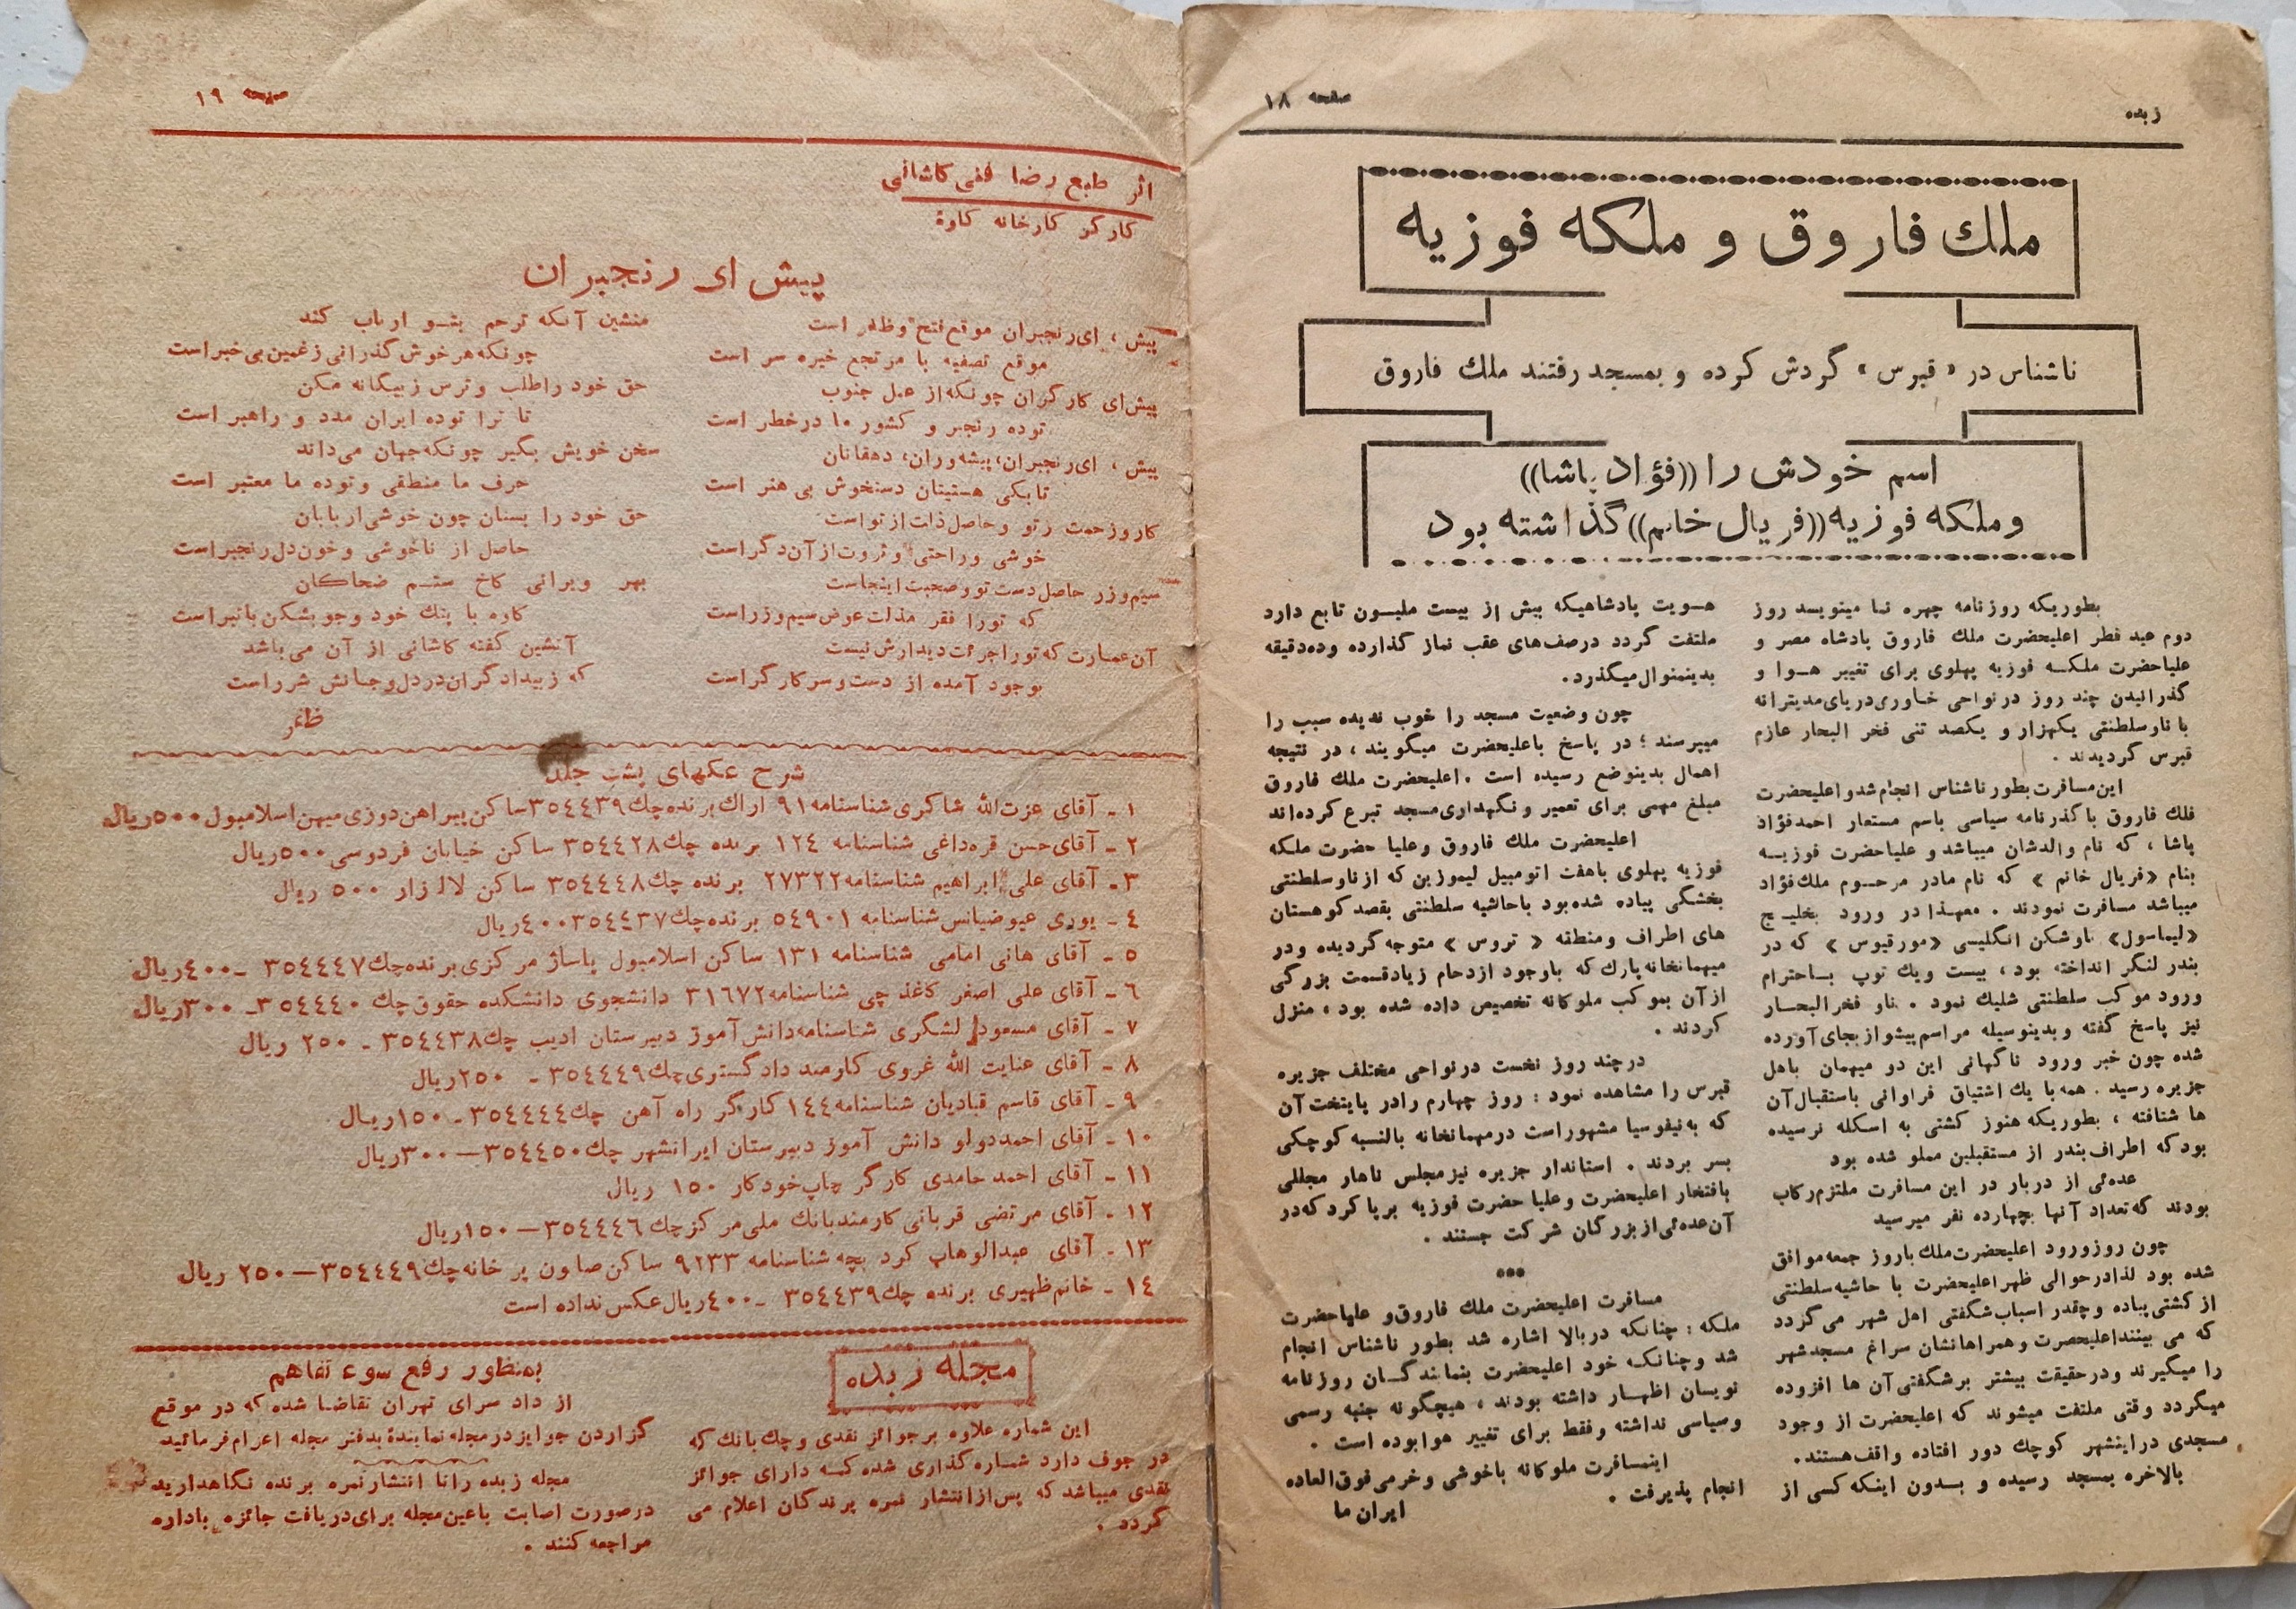 زبده
صفحه ۱۸
ملك فاروق و ملكه فوزیه
ناشناس در «قبرس» گردش كرده و بمسجد رفتند ملك فاروق
اسم خودش را ((فؤاد پاشا))
و ملكه فوزیه ((فریال خانم)) گذاشته بود
بطوریكه روزنامه چهره نما مینویسد روز
دوم عید فطر اعلیحضرت ملك فاروق پادشاه مصر و
علیاحضرت ملكه فوزیه پهلوی برای تغییر هوا و
گذرانیدن چند روز در نواحی خاوری دریای مدیترانه
با ناو سلطنتی یكهزار و یكصد تنی فخر البحار عازم
قبرس گردیدند .
این مسافرت بطور ناشناس انجام شد و اعلیحضرت
فلك فاروق با گذرنامه سیاسی باسم مستعار احمد فؤاد
پاشا ، كه نام والدشان میباشد و علیاحضرت فوزیه
بنام «فریال خانم» كه نام مادر مرحوم ملك فؤاد
میباشد مسافرت نمودند . معهذا در ورود بخلیج
«لیماسول» ناوشكن انگلیسی «مورقیوس» كه در
بندر لنگر انداخته بود ، بیست ویك توپ باحترام
ورود موكب سلطنتی شلیك نمود . ناو فخر البحار
نیز پاسخ گفته و بدینوسیله مراسم پیشواز بجای آورده
شده چون خبر ورود ناگهانی این دو میهمان باهل
جزیره رسید . همه با یك اشتیاق فراوانی باستقبال آن
ها شتافته ، بطوریكه هنوز كشتی به اسكله نرسیده
بود كه اطراف بندر از مستقبلین مملو شده بود
عده‌ئی از دربار در این مسافرت ملتزم ركاب
بودند كه تعداد آنها بچهارده نفر میرسید
چون روز ورود اعلیحضرت ملك با روز جمعه موافق
شده بود لذا در حوالی ظهر اعلیحضرت با حاشیه سلطنتی
از كشتی پیاده و چقدر اسباب شگفتی اهل شهر می گردد
كه می بینند اعلیحضرت و همراهانشان سراغ مسجد شهر
را میگیرند و در حقیقت بیشتر بر شگفتی آن ها افزوده
میگردد وقتی ملتفت میشوند كه اعلیحضرت از وجود
مسجدی در اینشهر كوچك دور افتاده واقف هستند.
بالاخره بمسجد رسیده و بدون اینكه كسی از
هویت پادشاهیكه بیش از بیست ملیون تابع دارد
ملتفت گردد در صف‌های عقب نماز گذارده و ده دقیقه
بدینمنوال میگذرد.
چون وضعیت مسجد را خوب ندیده سبب را
میپرسند ؛ در پاسخ باعلیحضرت میگویند ، در نتیجه
اهمال بدینوضع رسیده است . اعلیحضرت ملك فاروق
مبلغ مهمی برای تعمیر و نگهداری مسجد تبرع كرده‌اند
اعلیحضرت ملك فاروق وعلیا حضرت ملكه
فوزیه پهلوی باهفت اتومبیل لیموزین كه از ناو سلطنتی
بخشگی پیاده شده بود با حاشیه سلطنتی بقصد كوهستان
های اطراف و منطقه « تروس » متوجه گردیده و در
میهمانخانه پارك كه با وجود ازدحام زیاد قسمت بزرگی
از آن بموكب ملوكانه تخصیص داده شده بود ، منزل
كردند .
در چند روز نخست در نواحی مختلف جزیره
قبرس را مشاهده نمود : روز چهارم را در پایتخت آن
كه به نیقوسیا مشهور است در مهمانخانه بالنسبه كوچكی
بسر بردند . استاندار جزیره نیز مجلس ناهار مجللی
بافتخار اعلیحضرت و علیا حضرت فوزیه برپا كرد كه در
آن عده‌ئی از بزرگان شركت جستند .
***
مسافرت اعلیحضرت ملك فاروق و علیاحضرت
ملكه : چنانكه در بالا اشاره شد بطور ناشناس انجام
شد و چنانكه خود اعلیحضرت بنمایندگان روزنامه
نویسان اظهار داشته بودند ، هیچگونه جنبه رسمی
و سیاسی نداشته و فقط برای تغییر هوا بوده است .
اینمسافرت ملوكانه باخوشی و خرمی فوق العاده
انجام پذیرفت .
ایران ما
صفحه ۱۹
اثر طبع رضا فنی كاشانی
كارگر كارخانه كاوهٔ
پیش ای رنجبران
پیش ، ای رنجبران موقع فتح وظفر است
موقع تصفیه با مرتجع خیره سر است
پیش ای كارگران چونكه از عمل جنوب
توده رنجبر و كشور ۱۰ در خطر است
پیش ، ای رنجبران، پیشه وران، دهقانان
تابكی هستیتان دستخوش بی هنر است
كار و زحمت ز تو و حاصل ذات از تو است
خوشی و راحتی و ثروت از آن دگر است
سیم و زر حاصل دست تو و صحبت اینجاست
كه تو را فقر مذلت عوض سیم و زر است
آن عمارت كه تو را جرئت دیدارش نیست
بوجود آمده از دست و سر كارگر است
منشین آنكه ترحم بتو ارباب كند
چونكه هر خوش گذرانی ز غمین بی خبر است
حق خود را طلب و ترس ز بیگانه مكن
تا ترا توده ایران مدد و راهبر است
سخن خویش بگیر چونكه جهان می داند
حرف ما منطقی و توده ما معتبر است
حق خود را بستان چون خوشی اربابان
حاصل از ناخوشی و خون دل رنجبر است
بهر ویرانی كاخ ستم ضحاكان
كاوه با پتك خود و جو بشكن با تبر است
آتشین گفته كاشانی از آن می باشد
كه ز بیدادگران در دل و جانش شرر است
ظفر
شرح عكسهای پشت جلد
۱ ـ آقای عزت‌الله شاكری شناسنامه ۹۱ اراك برنده چك ۳۵٤٤۳۹ ساكن پیراهن دوزی میهن اسلامبول ۵۰۰ ریال
۲ ـ آقای حسن قره‌داغی شناسنامه ۱۲٤ برنده چك ۳۵٤٤۲۸ ساكن خیابان فردوسی ۵۰۰ ریال
۳ ـ آقای علی ابراهیم شناسنامه ۲۷۳۲۲ برنده چك ۳۵٤٤٤۸ ساكن لاله زار ۵۰۰ ریال
٤ ـ یوری عیوضیانس شناسنامه ۵٤۹۰۱ برنده چك ۳۵٤٤۳۷ ٤۰۰ ریال
۵ ـ آقای هانی امامی شناسنامه ۱۳۱ ساكن اسلامبول پاساژ مركزی برنده چك ۳۵٤٤٤۷ ـ ٤۰۰ ریال
٦ ـ آقای علی اصغر كاغذ چی شناسنامه ۳۱٦۷۲ دانشجوی دانشكده حقوق چك ۳۵٤٤٤۰ ـ ۳۰۰ ریال
۷ ـ آقای مسعود لشگری شناسنامه دانش آموز دبیرستان ادیب چك ۳۵٤٤۳۸ ـ ۲۵۰ ریال
۸ ـ آقای عنایت الله غروی كارمند دادگستری چك ۳۵٤٤٤۹ ـ ۲۵۰ ریال
۹ ـ آقای قاسم قبادیان شناسنامه ۱٤٤ كارگر راه آهن چك ۳۵٤٤٤٤ ـ ۱۵۰ ریال
۱۰ ـ آقای احمد دولو دانش آموز دبیرستان ایرانشهر چك ۳۵٤٤۵۰ — ۳۰۰ ریال
۱۱ ـ آقای احمد حامدی كارگر چاپ خودكار ۱۵۰ ریال
۱۲ ـ آقای مرتضی قربانی كارمند بانك ملی مركز چك ۳۵٤٤٤٦ — ۱۵۰ ریال
۱۳ ـ آقای عبدالوهاب كرد بچه شناسنامه ۹۲۳۳ ساكن صابون پز خانه چك ۳۵٤٤٤۹ — ۲۵۰ ریال
۱٤ ـ خانم ظهیری برنده چك ۳۵٤٤۳۹ ـ ٤۰۰ ریال عكس نداده است
مجله زبده
این شماره علاوه بر جوائز نقدی و چك بانك كه
در جوف دارد شماره گذاری شده كه دارای جوائز
نقدی میباشد كه پس از انتشار نمره برندگان اعلام می
گردد .
بمنظور رفع سوء تفاهم
از داد سرای تهران تقاضا شده كه در موقع
گزاردن جوایز در مجله نمایندهٔ بدفتر مجله اعزام فرمائید
مجله زبده را تا انتشار نمره برنده نگاهدارید
در صورت اصابت با عین مجله برای دریافت جائزه باداره
مراجعه كنند .